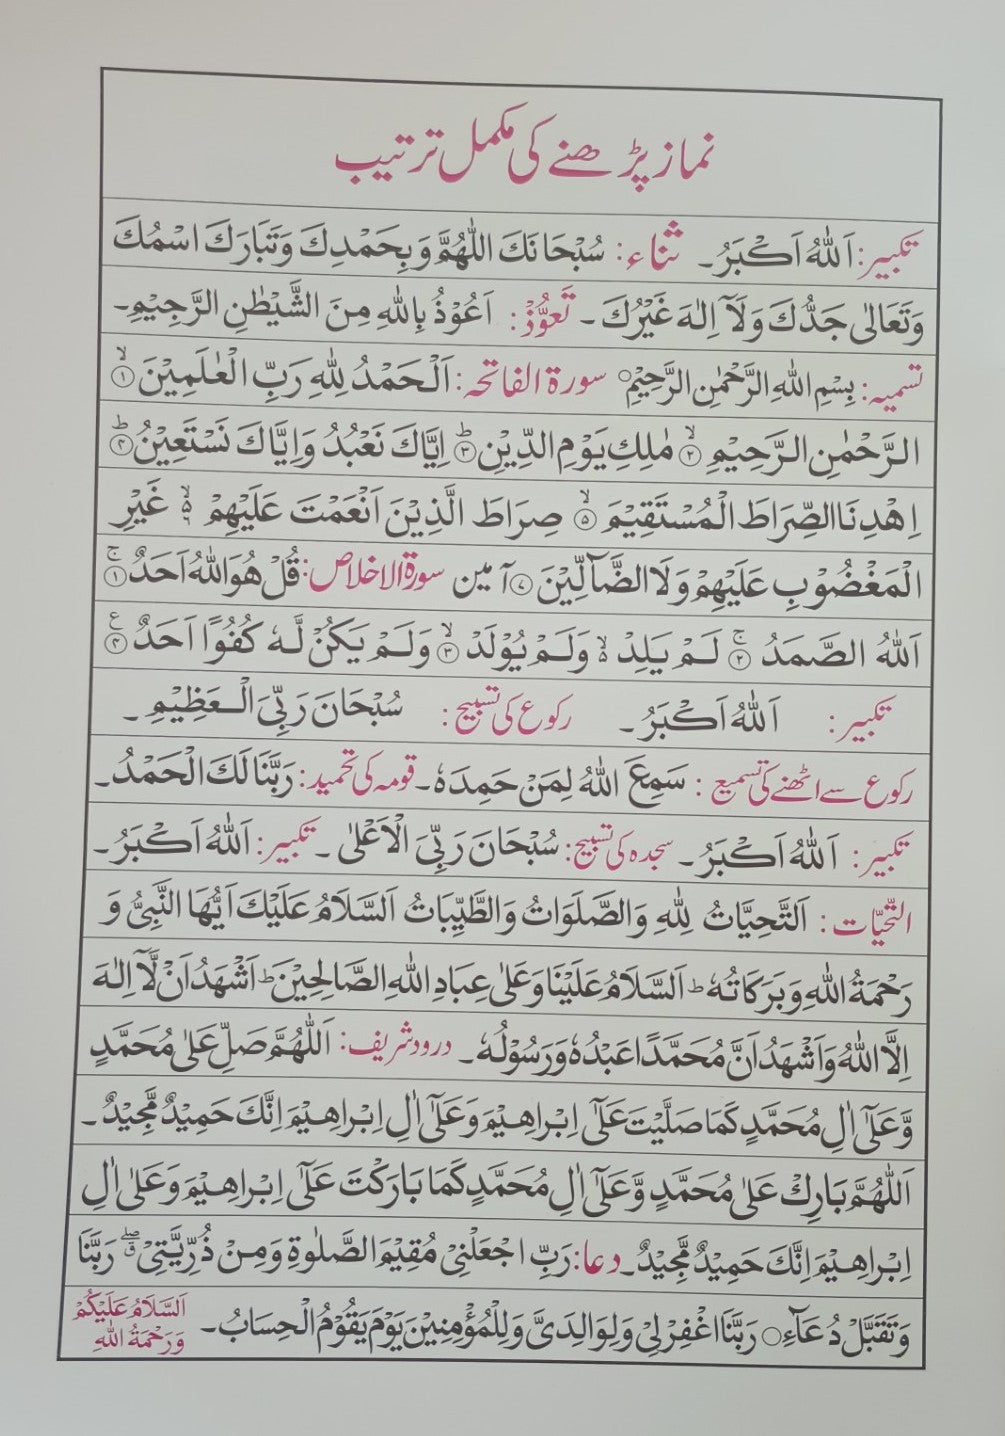 نماز پڑھنے کی مکمل ترتیب
تکبیر: اَللّٰهُ اَكْبَرُ۔ ثناء: سُبْحَانَكَ اللّٰهُمَّ وَبِحَمْدِكَ وَتَبَارَكَ اسْمُكَ
وَتَعَالٰى جَدُّكَ وَلَآ اِلٰهَ غَيْرُكَ۔ تَعوُّذ: اَعُوْذُ بِاللّٰهِ مِنَ الشَّيْطٰنِ الرَّجِيْمِ۔
تسمیہ: بِسْمِ اللّٰهِ الرَّحْمٰنِ الرَّحِيْمِ○ سورة الفاتحہ: اَلْحَمْدُ لِلّٰهِ رَبِّ الْعٰلَمِيْنَ ۙ﴿۱﴾
الرَّحْمٰنِ الرَّحِيْمِ ۙ﴿۲﴾ مٰلِكِ يَوْمِ الدِّيْنِ ؕ﴿۳﴾ اِيَّاكَ نَعْبُدُ وَاِيَّاكَ نَسْتَعِيْنُ ؕ﴿۴﴾
اِهْدِنَا الصِّرَاطَ الْمُسْتَقِيْمَ ۙ﴿۵﴾ صِرَاطَ الَّذِيْنَ اَنْعَمْتَ عَلَيْهِمْ ۙ۬ غَيْرِ
الْمَغْضُوْبِ عَلَيْهِمْ وَلَا الضَّآلِّيْنَ ﴿۷﴾ آمین سورة الاخلاص: قُلْ هُوَ اللّٰهُ اَحَدٌ ۚ﴿۱﴾
اَللّٰهُ الصَّمَدُ ۚ﴿۲﴾ لَمْ يَلِدْ ۙ۬ وَلَمْ يُوْلَدْ ۙ﴿۳﴾ وَلَمْ يَكُنْ لَّهٗ كُفُوًا اَحَدٌ ﴿۴﴾ع
تکبیر: اَللّٰهُ اَكْبَرُ۔ رکوع کی تسبیح: سُبْحَانَ رَبِّيَ الْعَظِيْمِ۔
رکوع سے اٹھنے کی تسمیع: سَمِعَ اللّٰهُ لِمَنْ حَمِدَهٗ۔ قومہ کی تحمید: رَبَّنَا لَكَ الْحَمْدُ۔
تکبیر: اَللّٰهُ اَكْبَرُ۔ سجدہ کی تسبیح: سُبْحَانَ رَبِّيَ الْاَعْلٰى۔ تکبیر: اَللّٰهُ اَكْبَرُ۔
التّحیّات: اَلتَّحِيَّاتُ لِلّٰهِ وَالصَّلَوَاتُ وَالطَّيِّبَاتُ اَلسَّلَامُ عَلَيْكَ اَيُّهَا النَّبِيُّ وَ
رَحْمَةُ اللّٰهِ وَبَرَكَاتُهٗ ؕ اَلسَّلَامُ عَلَيْنَا وَعَلٰى عِبَادِ اللّٰهِ الصَّالِحِيْنَ ؕ اَشْهَدُ اَنْ لَّآ اِلٰهَ
اِلَّا اللّٰهُ وَاَشْهَدُ اَنَّ مُحَمَّدًا عَبْدُهٗ وَرَسُوْلُهٗ۔ درود شریف: اَللّٰهُمَّ صَلِّ عَلٰى مُحَمَّدٍ
وَّعَلٰٓى اٰلِ مُحَمَّدٍ كَمَا صَلَّيْتَ عَلٰٓى اِبْرَاهِيْمَ وَعَلٰٓى اٰلِ اِبْرَاهِيْمَ اِنَّكَ حَمِيْدٌ مَّجِيْدٌ۔
اَللّٰهُمَّ بَارِكْ عَلٰى مُحَمَّدٍ وَّعَلٰٓى اٰلِ مُحَمَّدٍ كَمَا بَارَكْتَ عَلٰٓى اِبْرَاهِيْمَ وَعَلٰٓى اٰلِ
اِبْرَاهِيْمَ اِنَّكَ حَمِيْدٌ مَّجِيْدٌ۔ دعا: رَبِّ اجْعَلْنِيْ مُقِيْمَ الصَّلٰوةِ وَمِنْ ذُرِّيَّتِيْ ۖق رَبَّنَا
وَتَقَبَّلْ دُعَآءِ○ رَبَّنَا اغْفِرْ لِيْ وَلِوَالِدَيَّ وَلِلْمُؤْمِنِيْنَ يَوْمَ يَقُوْمُ الْحِسَابُ۔ اَلسَّلَامُ عَلَيْكُمْ
وَرَحْمَةُ اللّٰهِ